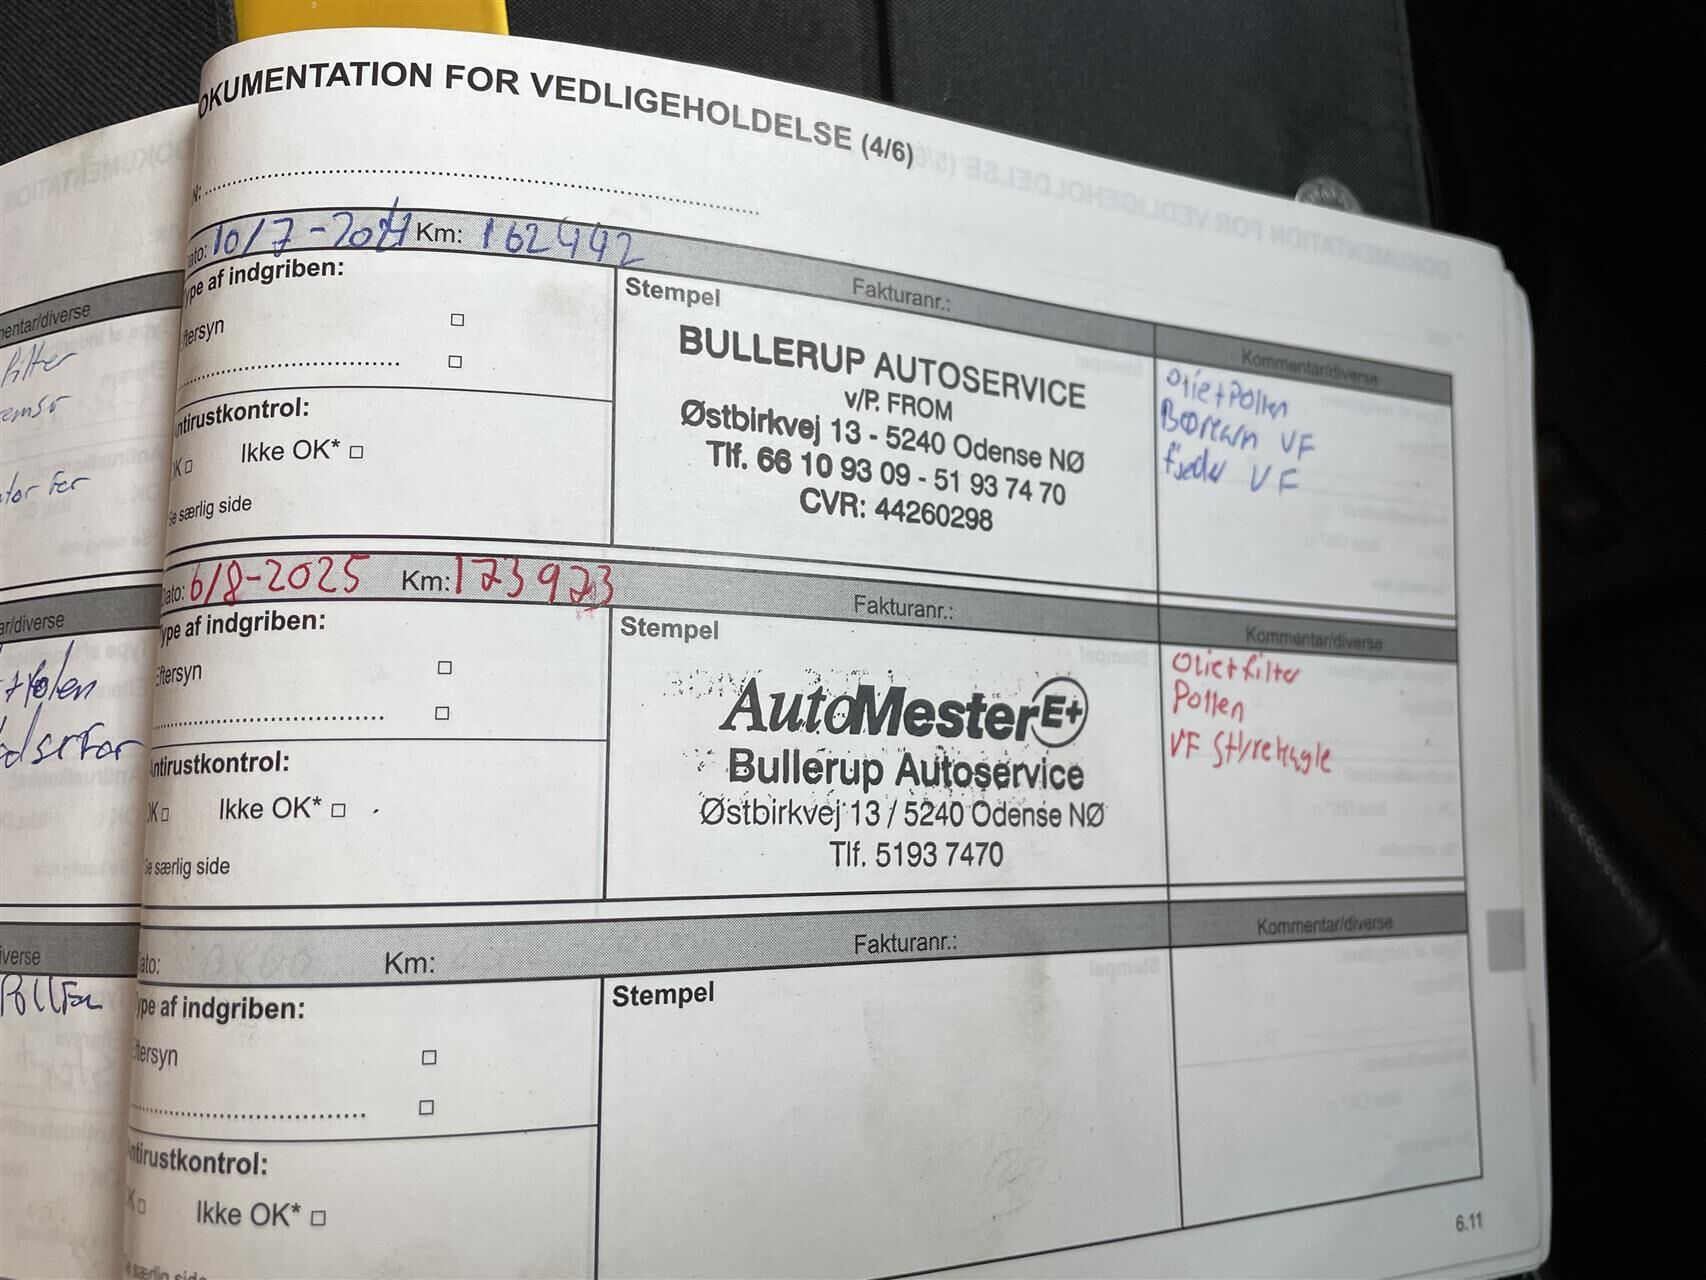 OKUMENTATION FOR VEDLIGEHOLDELSE (4/6)
N:
ato: 10/7-2024 Km: 162442
Fakturanr.:
Kommentar/diverse
ype af indgriben:
ftersyn
ntirustkontrol:
OK Ikke OK*
Se særlig side
Stempel
BULLERUP AUTOSERVICE
v/P. FROM
Østbirkvej 13 - 5240 Odense NØ
Tlf. 66 10 93 09 - 51 93 74 70
CVR: 44260298
Olie+Pollen
Bærearm VF
fjeder VF
Dato: 6/8-2025 Km: 173923
Fakturanr.:
Kommentar/diverse
Type af indgriben:
ftersyn
ntirustkontrol:
OK Ikke OK*
Se særlig side
Stempel
AutoMester E+
Bullerup Autoservice
Østbirkvej 13 / 5240 Odense NØ
Tlf. 5193 7470
Olie+filter
Pollen
VF Styrekugle
ato: Km:
Fakturanr.:
Kommentar/diverse
ype af indgriben:
ftersyn
ntirustkontrol:
OK Ikke OK*
Stempel
6.11
mentar/diverse
filter
ar/diverse
iverse